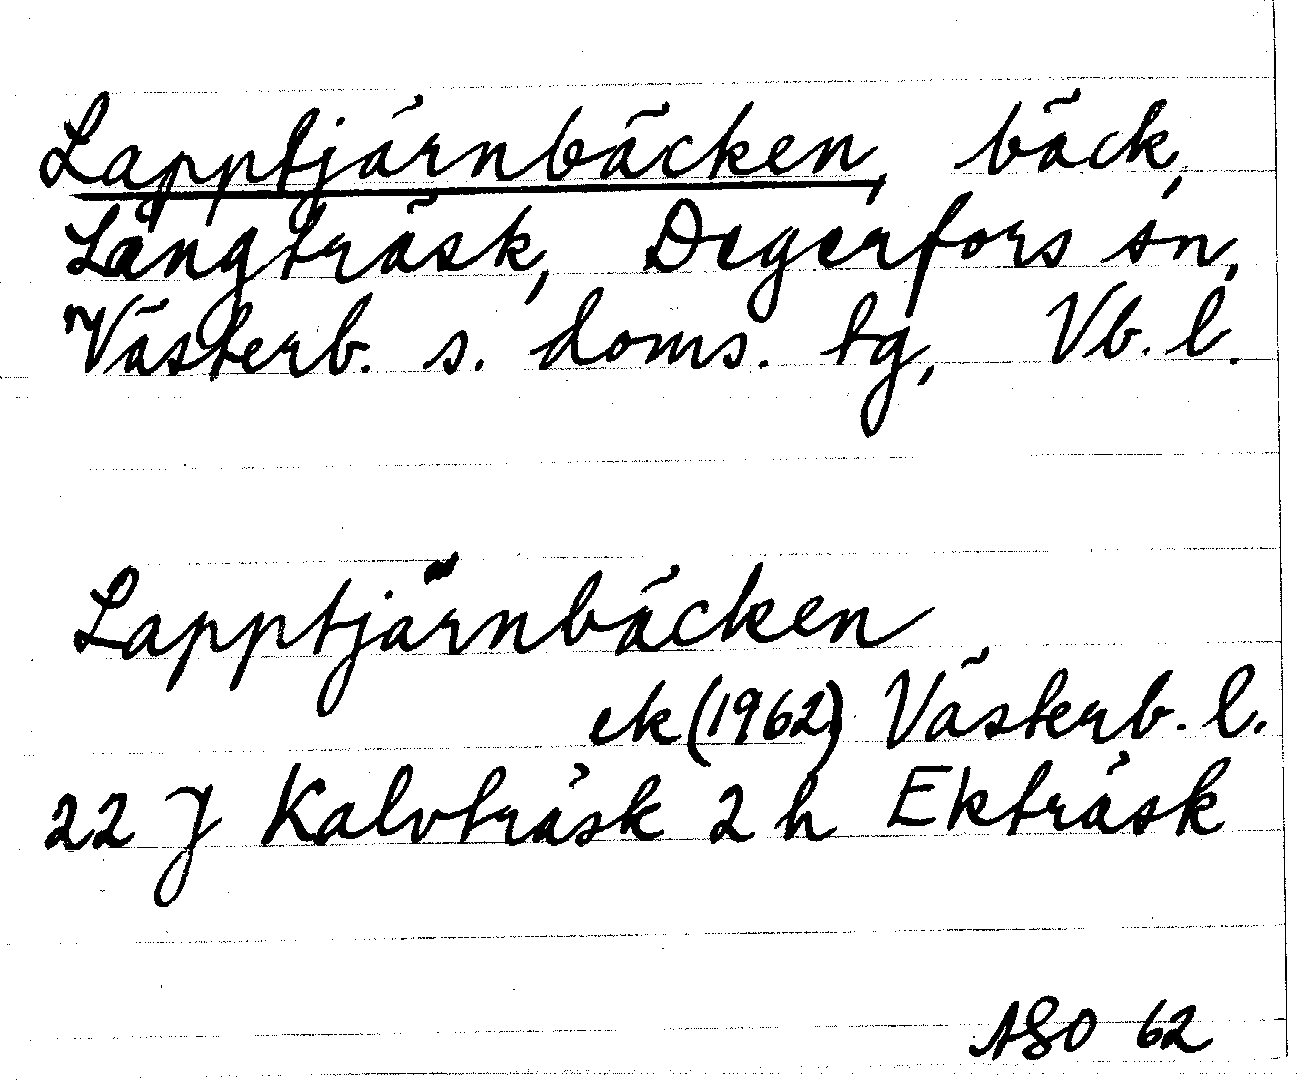 Lapptjärnbäcken, bäck,
Långträsk, Degerfors sn,
Västerb. s. doms. tg, Vb. l.
Lapptjärnbäcken
ek (1962) Västerb. l.
22 J Kalvträsk 2 h Ekträsk
ASO 62